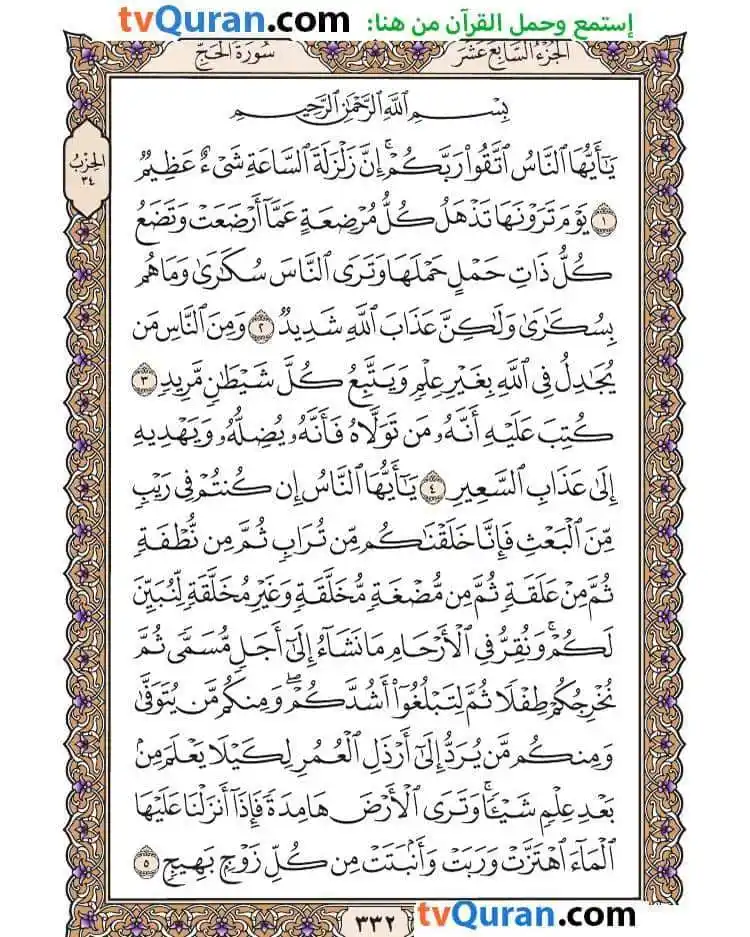 إستمع وحمل القرآن من هنا: tvQuran.com
الجزء السابع عشر
سورة الحج
بِسْمِ ٱللَّهِ ٱلرَّحْمَٰنِ ٱلرَّحِيمِ
الحزب
٣٤
يَٰٓأَيُّهَا ٱلنَّاسُ ٱتَّقُوا۟ رَبَّكُمْ ۚ إِنَّ زَلْزَلَةَ ٱلسَّاعَةِ شَىْءٌ عَظِيمٌ
١ يَوْمَ تَرَوْنَهَا تَذْهَلُ كُلُّ مُرْضِعَةٍ عَمَّآ أَرْضَعَتْ وَتَضَعُ
كُلُّ ذَاتِ حَمْلٍ حَمْلَهَا وَتَرَى ٱلنَّاسَ سُكَٰرَىٰ وَمَا هُم
بِسُكَٰرَىٰ وَلَٰكِنَّ عَذَابَ ٱللَّهِ شَدِيدٌ ٢ وَمِنَ ٱلنَّاسِ مَن
يُجَٰدِلُ فِى ٱللَّهِ بِغَيْرِ عِلْمٍ وَيَتَّبِعُ كُلَّ شَيْطَٰنٍ مَّرِيدٍ ٣
كُتِبَ عَلَيْهِ أَنَّهُۥ مَن تَوَلَّاهُ فَأَنَّهُۥ يُضِلُّهُۥ وَيَهْدِيهِ
إِلَىٰ عَذَابِ ٱلسَّعِيرِ ٤ يَٰٓأَيُّهَا ٱلنَّاسُ إِن كُنتُمْ فِى رَيْبٍ
مِّنَ ٱلْبَعْثِ فَإِنَّا خَلَقْنَٰكُم مِّن تُرَابٍ ثُمَّ مِن نُّطْفَةٍ
ثُمَّ مِنْ عَلَقَةٍ ثُمَّ مِن مُّضْغَةٍ مُّخَلَّقَةٍ وَغَيْرِ مُخَلَّقَةٍ لِّنُبَيِّنَ
لَكُمْ ۚ وَنُقِرُّ فِى ٱلْأَرْحَامِ مَا نَشَآءُ إِلَىٰٓ أَجَلٍ مُّسَمًّى ثُمَّ
نُخْرِجُكُمْ طِفْلًا ثُمَّ لِتَبْلُغُوٓا۟ أَشُدَّكُمْ ۖ وَمِنكُم مَّن يُتَوَفَّىٰ
وَمِنكُم مَّن يُرَدُّ إِلَىٰٓ أَرْذَلِ ٱلْعُمُرِ لِكَيْلَا يَعْلَمَ مِنۢ
بَعْدِ عِلْمٍ شَيْـًٔا ۚ وَتَرَى ٱلْأَرْضَ هَامِدَةً فَإِذَآ أَنزَلْنَا عَلَيْهَا
ٱلْمَآءَ ٱهْتَزَّتْ وَرَبَتْ وَأَنۢبَتَتْ مِن كُلِّ زَوْجٍۭ بَهِيجٍ ٥
٣٣٢
tvQuran.com